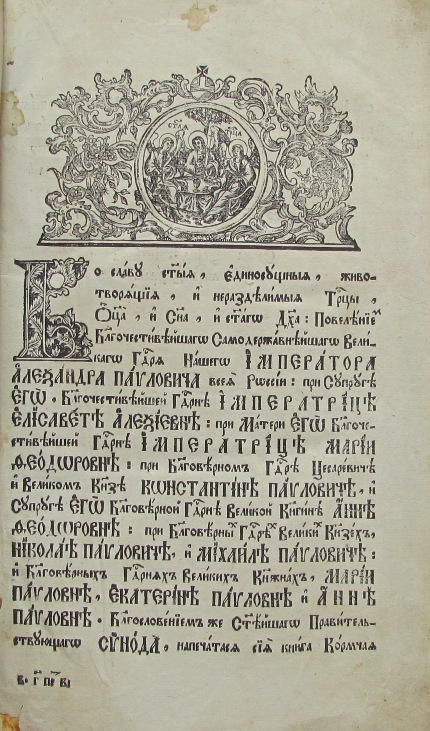 Во славу ст҃ыѧ, єдиносущныѧ, живо-
творѧщїѧ, и нераздѣлимыѧ Трⷪ҇цы,
Ѻц҃а, и Сн҃а, и ст҃агѡ Дх҃а: Повелѣнїемъ
Бл҃гочестивѣйшагѡ Самодержавнѣйшагѡ Вели-
кагѡ Гдⷭ҇рѧ Нашегѡ ІМПЕРАТОРА
АЛЕѮАНДРА ПАѴЛОВИЧА всеѧ Рѡссїи: при Супругѣ
ЄГѠ. Бл҃гочестивѣйшей Гдⷭ҇рнѣ ІМПЕРАТРИЦѢ
ЄЛІСАВЕТѢ АЛЕѮІЕВНѢ: при Матери ЄГѠ Бл҃гоче-
стивѣйшей Гдⷭ҇рнѣ ІМПЕРАТРИЦѢ МАРІИ
ѲЕОДѠРОВНѢ: при Бл҃говѣрномъ Гдⷭ҇рѣ Цесаревичѣ
и Великомъ Кн҃зѣ КѠНСТАНТІНѢ ПАѴЛОВИЧѢ, и
Супругѣ ЄГѠ Бл҃говѣрной Гдⷭ҇рнѣ Великой Кн҃гинѣ АННѢ
ѲЕОДѠРОВНѢ: при Бл҃говѣрныⷯ Гдⷭ҇рѣⷯ Великиⷯ Кн҃зехъ,
НІКОЛАѢ ПАѴЛОВИЧѢ, и МІХАИЛѢ ПАѴЛОВИЧѢ:
и Бл҃говѣрныхъ Гдⷭ҇рнѧхъ Великихъ Кн҃жнахъ, МАРІИ
ПАѴЛОВНѢ, ЄКАТЕРІНѢ ПАѴЛОВНѢ и АННѢ
ПАѴЛОВНѢ. Бл҃гословенїемъ же Ст҃ѣйшагѡ Правитель-
ствующагѡ СѴНОДА, напечатасѧ сїѧ книга Кормчаѧ